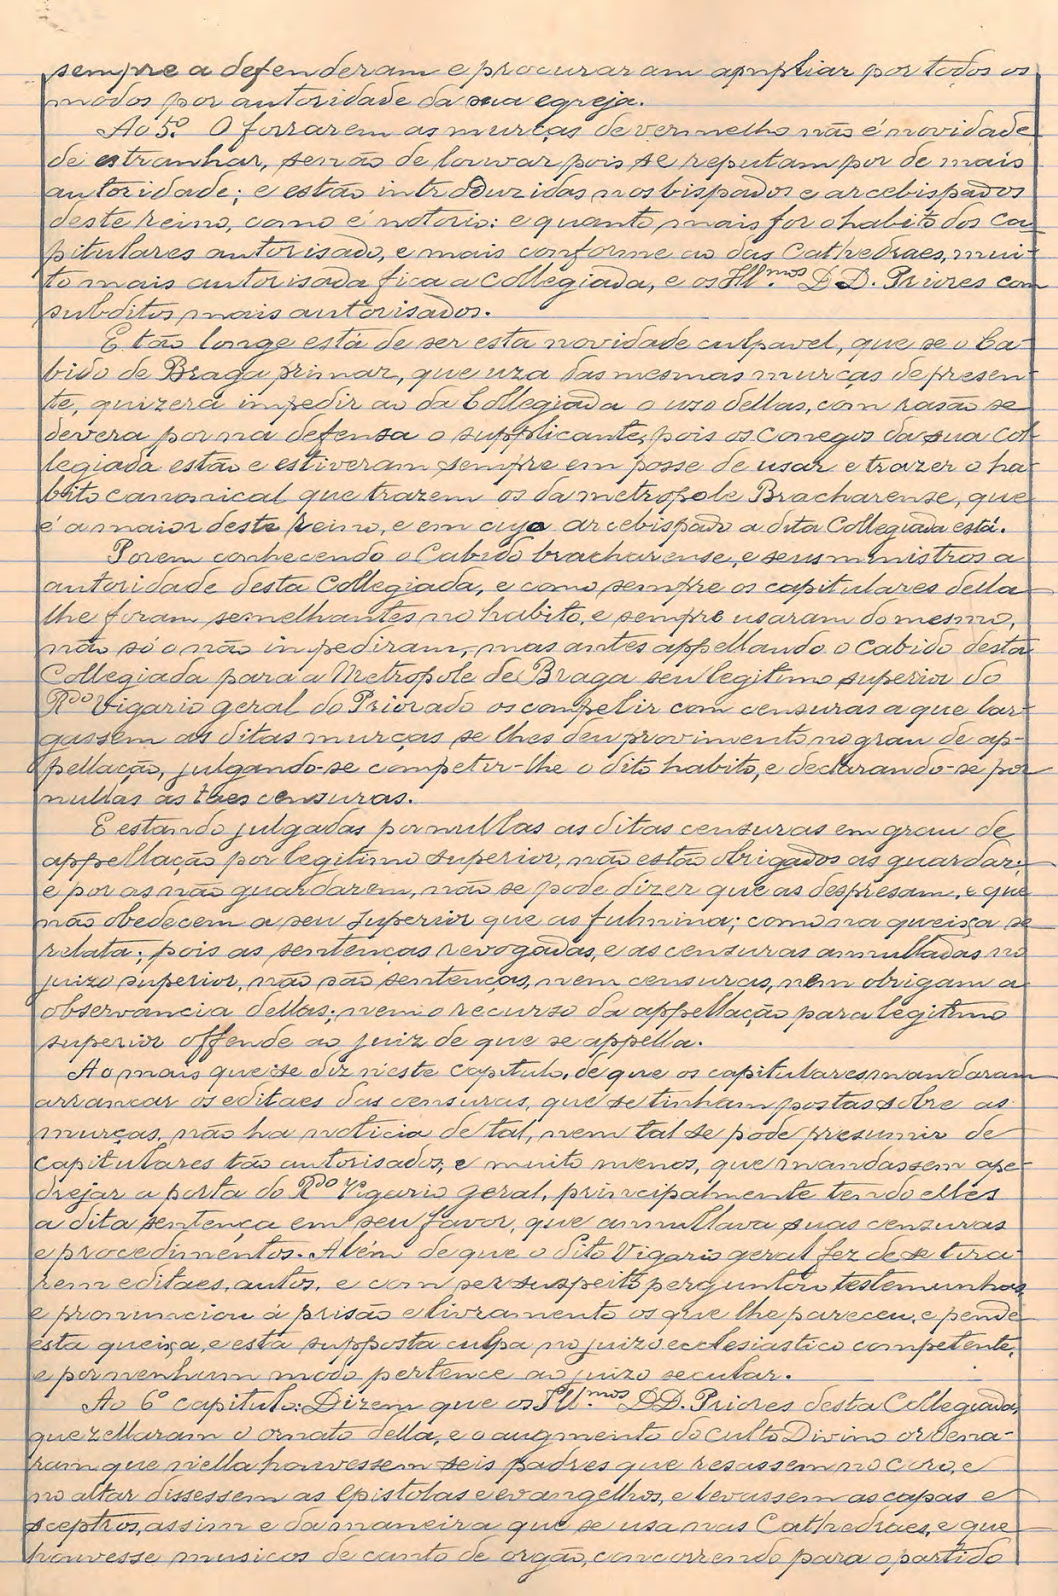 sempre a defenderam e procuraram ampliar por todos os
modos por autoridade da sua egreja.
Ao 5.º O forrarem as murças de vermelho não é novidade
de estranhar, senão de louvar pois se reputam por de mais
autoridade; e estão introduzidas nos bispados e arcebispados
deste reino, como é notorio: e quanto mais for o habito dos ca-
pitulares autorisado, e mais conforme ao das Cathedraes, mui-
to mais autorisada fica a Collegiada, e os Ill.mos D. D. Priores com
subditos mais autorisados.
E tão longe está de ser esta novidade culpavel, que se o Ca-
bido de Braga primar, que uza das mesmas murças de presen-
te, quizera impedir ao da Collegiada o uzo dellas, com rasão se
devera por na defensa o supplicante, pois os conegos da sua Col-
legiada estão e estiveram sempre em posse de usar e trazer o ha-
bito canonical que trazem os da metropole Bracharense, que
é a maior deste reino, e em cujo arcebispado a dita Collegiada está.
Porem conhecendo o Cabido bracharense, e seus ministros a
autoridade desta Collegiada, e como sempre os capitulares della
lhe foram semelhantes no habito, e sempre usaram do mesmo,
não só o não impediram, mas antes appellando o Cabido desta
Collegiada para a Metropole de Braga seu legitimo superior do
R.do Vigario geral do Priorado os compelir com censuras a que lar-
gassem as ditas murças se lhes deu provimento no grau de ap-
pellação, julgando-se competir-lhe o dito habito, e declarando-se por
nullas as taes censuras.
E estando julgadas por nullas as ditas censuras em grau de
appellação por legitimo superior, não estão obrigados as guardar;
e por as não guardarem, não se pode dizer que as despresam, e que
não obedecem a seu superior que as fulmina; como na queixa se
relata; pois as sentenças revogadas, e as censuras annulladas no
juizo superior, não são sentenças, nem censuras, nem obrigam a
observancia dellas; nem o recurso da appellação para legitimo
superior offende ao juiz de que se appella.
Ao mais que se diz neste capitulo, de que os capitulares mandaram
arrancar os editaes das censuras, que se tinham postas sobre as
murças, não ha noticia de tal, nem tal se pode presumir de
capitulares tão autorisados, e muito menos, que mandassem ape-
drejar a porta do R.do Vigario geral, principalmente tendo elles
a dita sentença em seu favor, que annullava suas censuras
e procedimentos. Além de que o dito Vigario geral fez de se tira-
rem editaes, autos, e com ser suspeito perguntou testemunhas,
e pronunciou á prisão e livramento os que lhe pareceu, e pende
esta queixa, e esta supposta culpa no juizo ecclesiastico competente,
e por nenhum modo pertence ao juizo secular.
Ao 6º capitulo: Dizem que os Ill.mos DD. Priores desta Collegiada,
que zellaram o ornato della, e o augmento do culto Divino ordena-
ram que niella houvessem seis padres que resassem no coro, e
no altar dissessem as epistolas e evangelhos, e levassem as capas e
sceptros, assim e da maneira que se usa nas Cathedraes, e que
houvesse musicos de canto de orgão, concorrendo para o partido